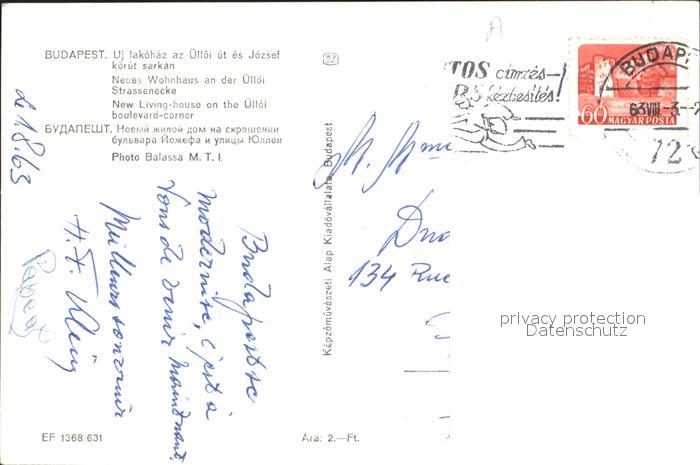 BUDAPEST. Uj lakóház az Üllői út és József
körút sarkán
Neues Wohnhaus an der Üllői
Strassenecke
New Living-house on the Üllői
boulevard-corner
БУДАПЕШТ. Новый жилой дом на скрещении
бульвара Йожефа и улицы Юллеи
Photo Balassa M. T. I.
Budapest se
modernise, c'est à
Vous de venir maintenant
Meilleur souvenir
EF 1368/631
Ára: 2.-Ft.
Képzőművészeti Alap Kiadóvállalata, Budapest
TOS címzés-
kézbesítés!
BUDAP
63 VIII -3.
72
60
MAGYAR POSTA
A
M. Mme
134 Rue
privacy protection
Datenschutz